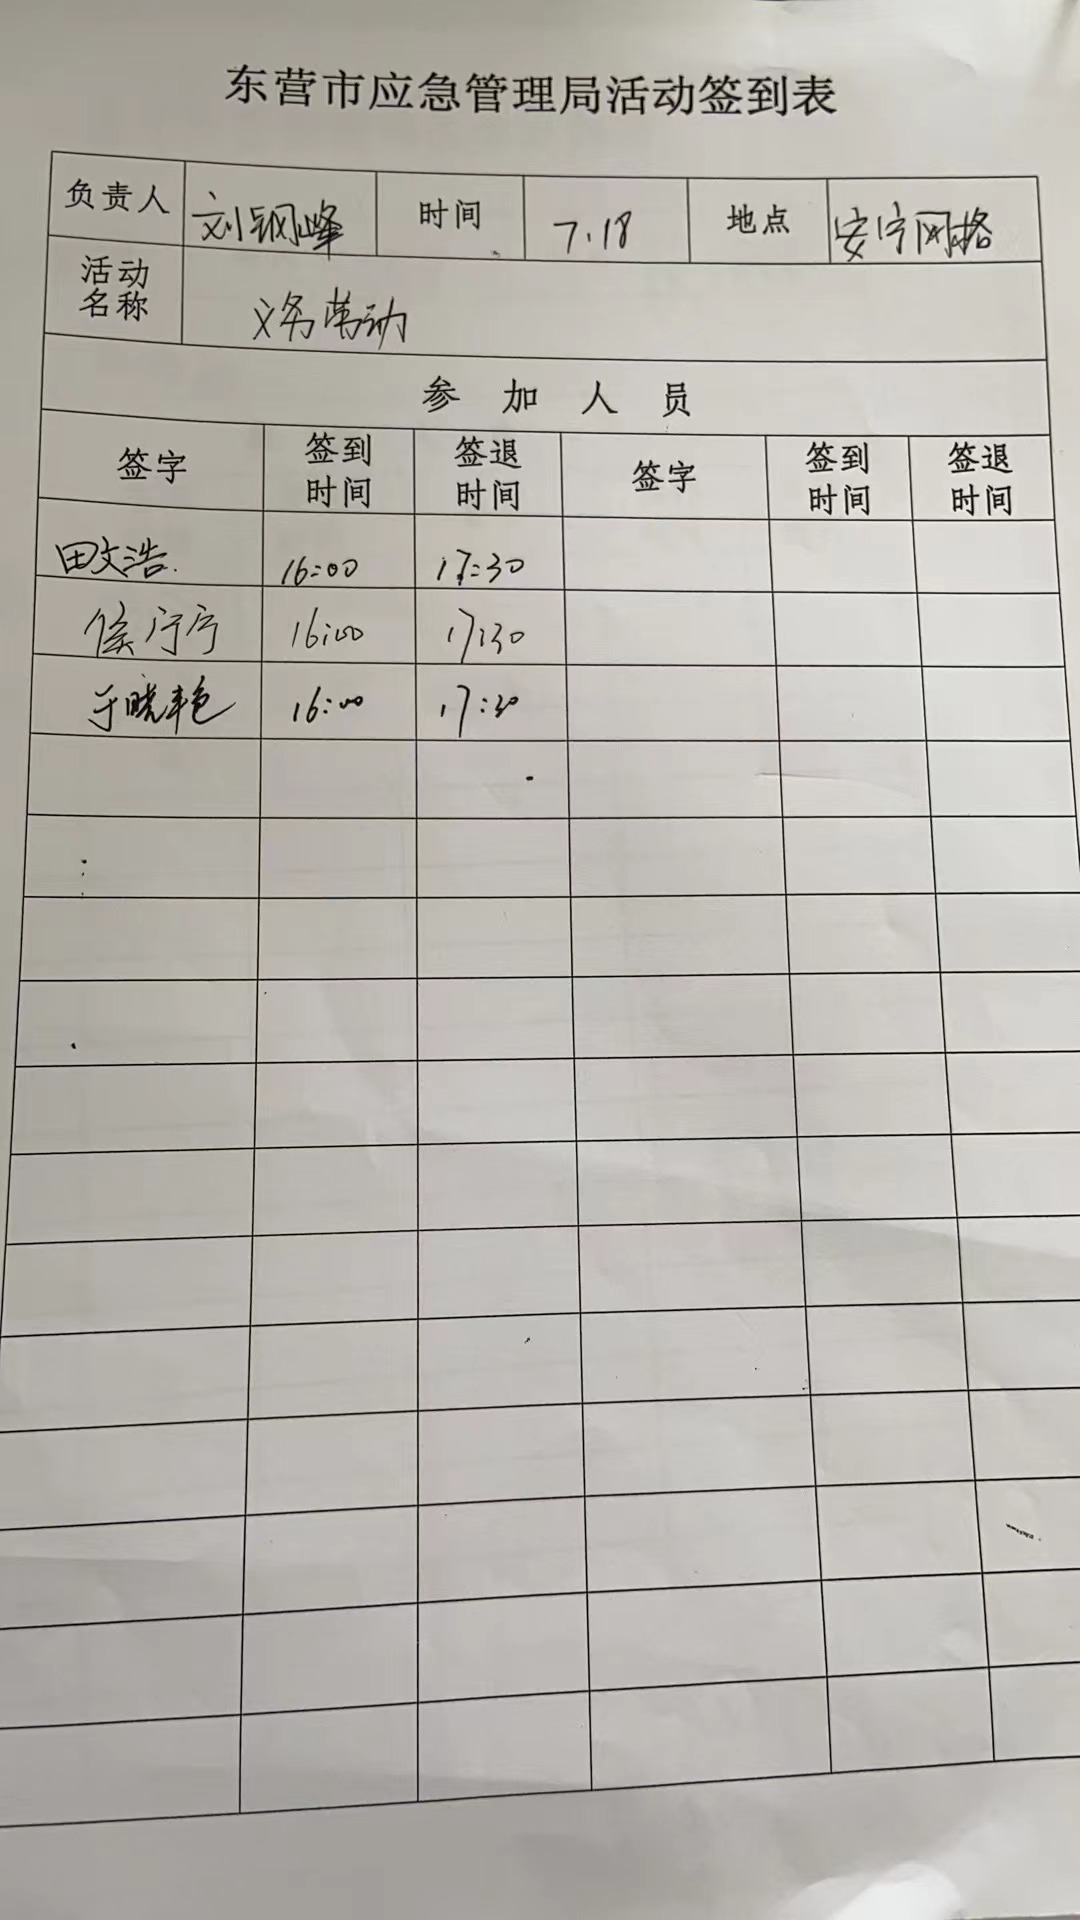 东营市应急管理局活动签到表
负责人 刘钢峰 时间 7.18 地点 安宁网格
活动名称 义务劳动
参加人员
签字 签到时间 签退时间 签字 签到时间 签退时间
田文浩 16:00 17:30
侯宁宁 16:00 17:30
于晓艳 16:00 17:30